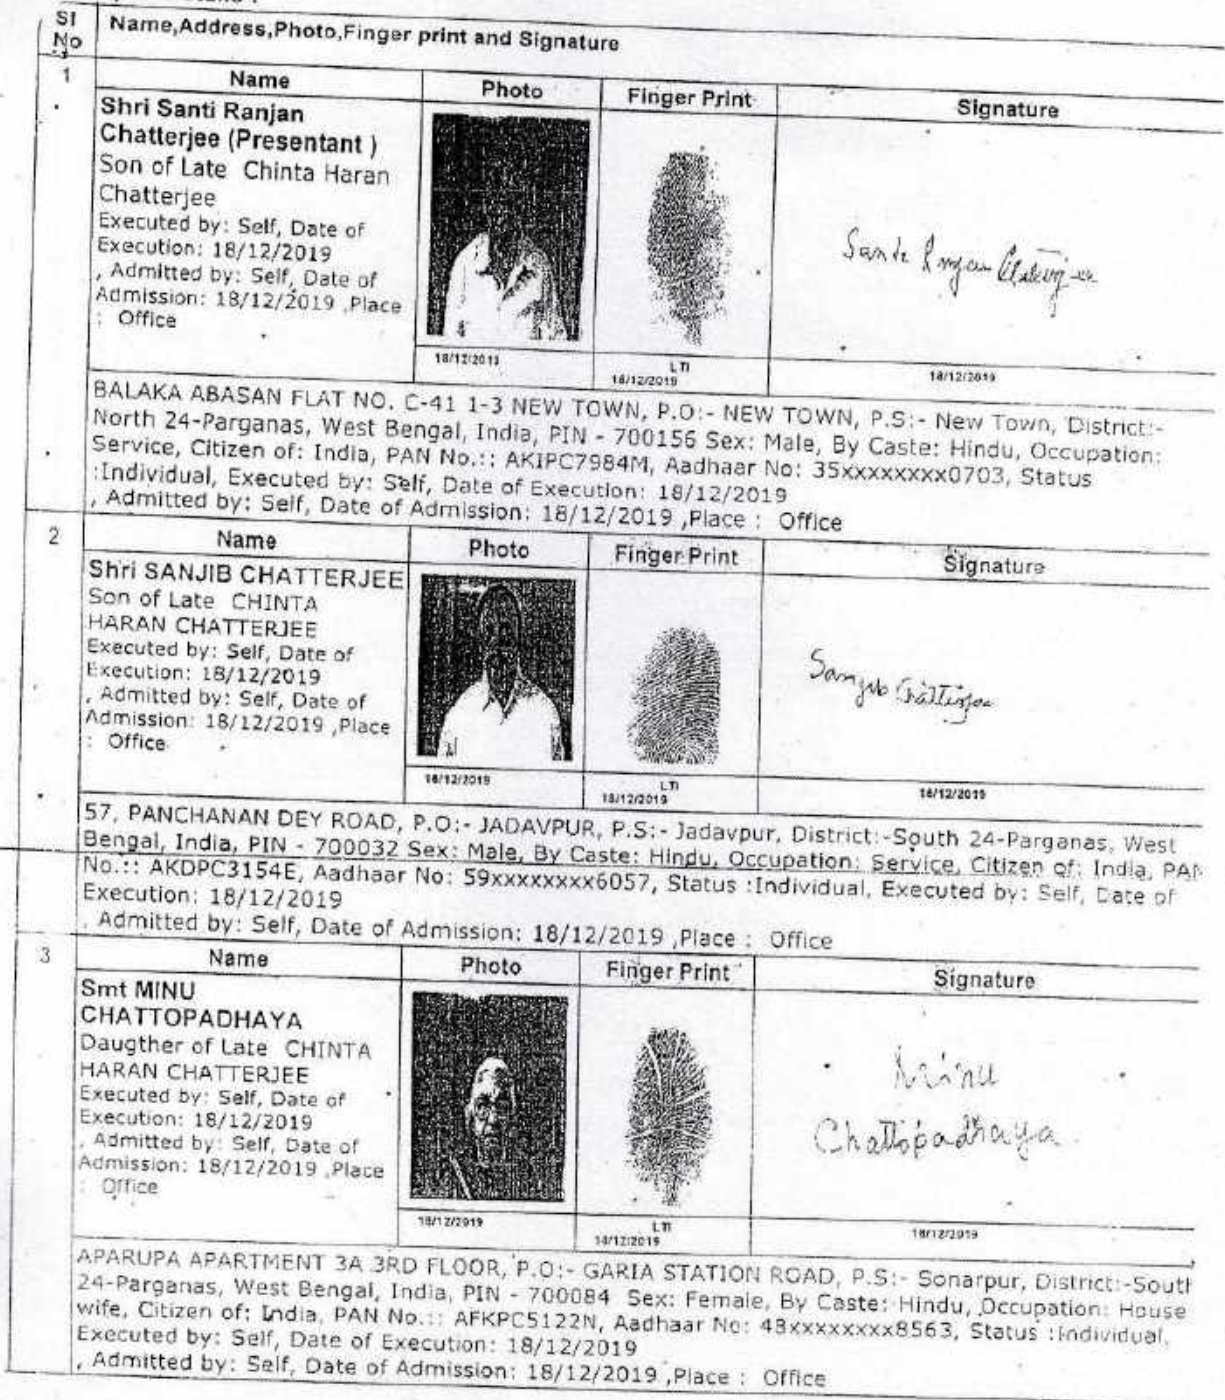 Sl
No
Name,Address,Photo,Finger print and Signature
1
Name
Photo
Finger Print
Signature
Shri Santi Ranjan
Chatterjee (Presentant )
Son of Late Chinta Haran
Chatterjee
Executed by: Self, Date of
Execution: 18/12/2019
, Admitted by: Self, Date of
Admission: 18/12/2019 ,Place
: Office
18/12/2019
LTI
18/12/2019
18/12/2019
BALAKA ABASAN FLAT NO. C-41 1-3 NEW TOWN, P.O:- NEW TOWN, P.S:- New Town, District:-
North 24-Parganas, West Bengal, India, PIN - 700156 Sex: Male, By Caste: Hindu, Occupation:
Service, Citizen of: India, PAN No.:: AKIPC7984M, Aadhaar No: 35xxxxxxxx0703, Status
:Individual, Executed by: Self, Date of Execution: 18/12/2019
, Admitted by: Self, Date of Admission: 18/12/2019 ,Place : Office
2
Name
Photo
Finger Print
Signature
Shri SANJIB CHATTERJEE
Son of Late CHINTA
HARAN CHATTERJEE
Executed by: Self, Date of
Execution: 18/12/2019
, Admitted by: Self, Date of
Admission: 18/12/2019 ,Place
: Office
Sanjib Chatterjee
18/12/2019
LTI
18/12/2019
18/12/2019
57, PANCHANAN DEY ROAD, P.O:- JADAVPUR, P.S:- Jadavpur, District:-South 24-Parganas, West
Bengal, India, PIN - 700032 Sex: Male, By Caste: Hindu, Occupation: Service, Citizen of: India, PAN
No.:: AKDPC3154E, Aadhaar No: 59xxxxxxxx6057, Status :Individual, Executed by: Self, Date of
Execution: 18/12/2019
, Admitted by: Self, Date of Admission: 18/12/2019 ,Place : Office
3
Name
Photo
Finger Print
Signature
Smt MINU
CHATTOPADHAYA
Daugther of Late CHINTA
HARAN CHATTERJEE
Executed by: Self, Date of
Execution: 18/12/2019
, Admitted by: Self, Date of
Admission: 18/12/2019 ,Place
: Office
Minu
Chattopadhaya
18/12/2019
LTI
18/12/2019
18/12/2019
APARUPA APARTMENT 3A 3RD FLOOR, P.O:- GARIA STATION ROAD, P.S:- Sonarpur, District:-South
24-Parganas, West Bengal, India, PIN - 700084 Sex: Female, By Caste: Hindu, Occupation: House
wife, Citizen of: India, PAN No.:: AFKPC5122N, Aadhaar No: 48xxxxxxxx8563, Status :Individual,
Executed by: Self, Date of Execution: 18/12/2019
, Admitted by: Self, Date of Admission: 18/12/2019 ,Place : Office